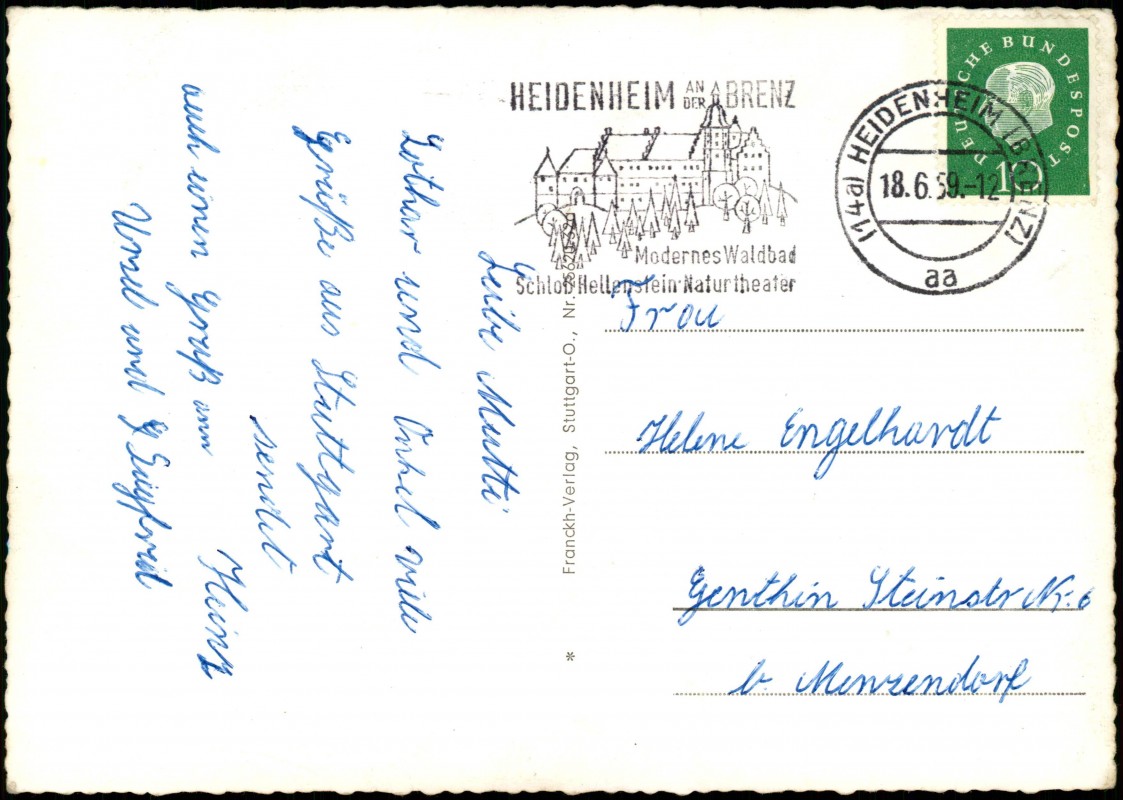 HEIDENHEIM AN DER BRENZ
Modernes Waldbad
Schloß Hellenstein Naturtheater
(14a) HEIDENHEIM (BRENZ)
18.6.59.-12
aa
DEUTSCHE BUNDESPOST
10
Leibe Mutti
Lothar und Onkel viele
Grüße aus Stuttgart
sendet
Heinz
auch einen Gruß von
Ursel und Siegfried
Franckh-Verlag, Stuttgart-O., Nr.
*
Frau
Helene Engelhardt
Genthin Steinstr Nr. 6
b. Menzendorf